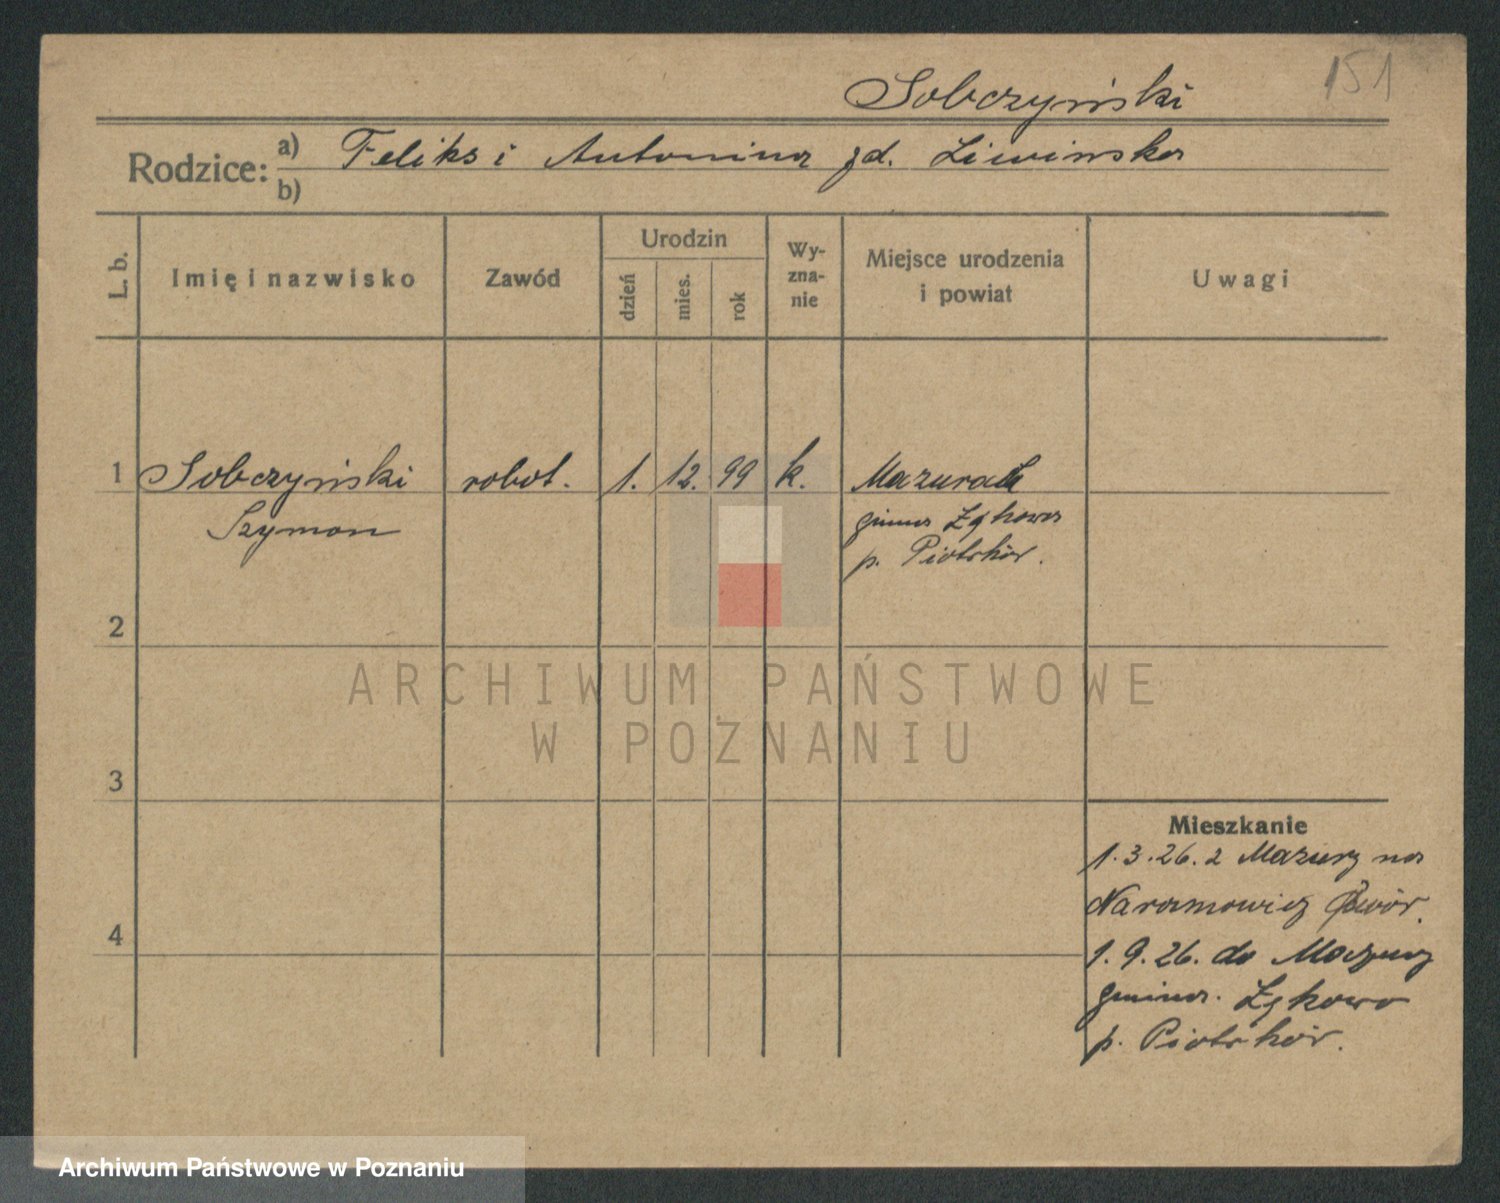 151
Sobczyński
Rodzice: a) Feliks i Antonina zd. Liwinska
b)
L. b. Imię i nazwisko Zawód Urodzin dzień mies. rok Wyznanie Miejsce urodzenia i powiat Uwagi
1 Sobczyński robot. 1. 12. 99 k.
Szymon gmina Łękawa
p. Piotrków.
2
ARCHIWUM PAŃSTWOWE
W POZNANIU
3
Mieszkanie
1.3.26. z Mazury na
Naramowicz Dwór.
4
1.9.26. do Mazury
gmina. Łękawa
p. Piotrków.
Archiwum Państwowe w Poznaniu